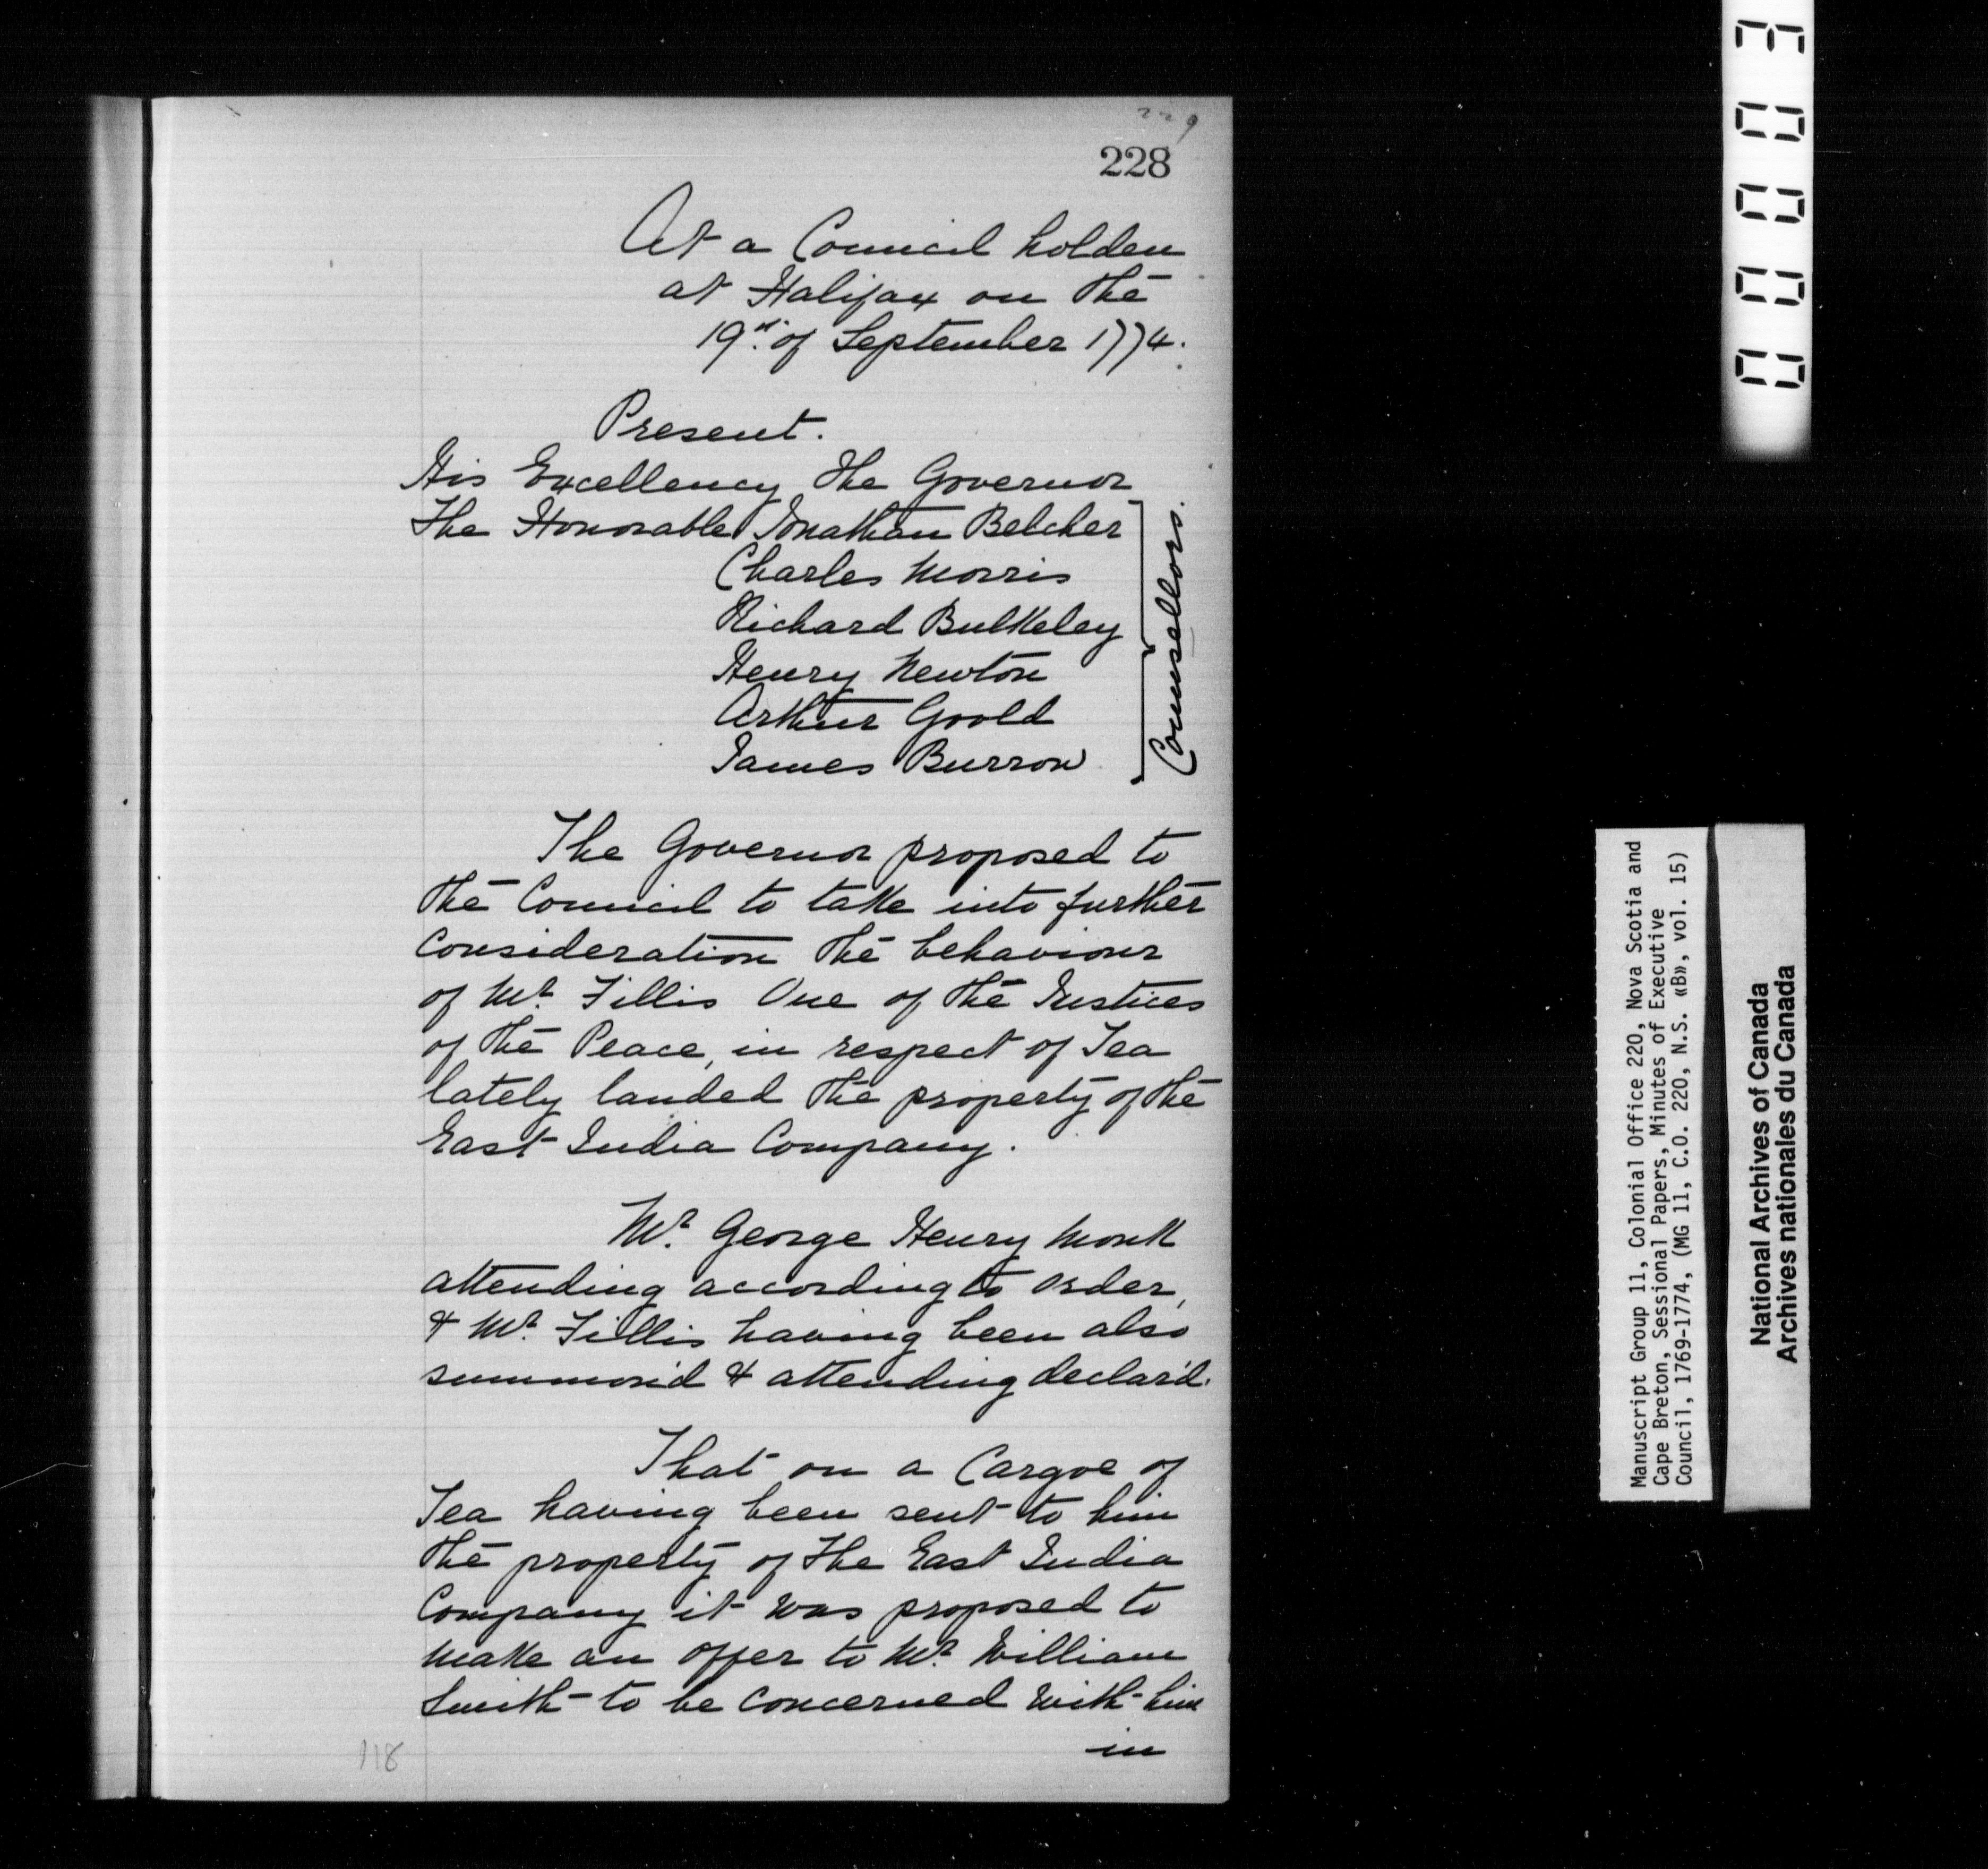 229
228
At a Council holden
at Halifax on the
19th of September 1774.
Present.
His Excellency the Governor
The Honorable Jonathan Belcher
Charles Morris
Richard Bulkeley
Henry Newton
Arthur Goold
James Burrow
Counsellors.
The Governor proposed to
the Council to take into further
Consideration the behaviour
of Mr. Fillis One of the Justices
of the Peace, in respect of Tea
lately landed the property of the
East India Company.
Mr. George Henry Monk
attending according to order,
& Mr. Fillis having been also
summon'd & attending declar'd.
That on a Cargoe of
Tea having been sent to him
the property of the East India
Company it was proposed to
make an offer to Mr. William
Smith to be concerned with him
in
118
00003
Manuscript Group 11, Colonial Office 220, Nova Scotia and
Cape Breton, Sessional Papers, Minutes of Executive
Council, 1769-1774, (MG 11, C.O. 220, N.S. «B», vol. 15)
National Archives of Canada
Archives nationales du Canada